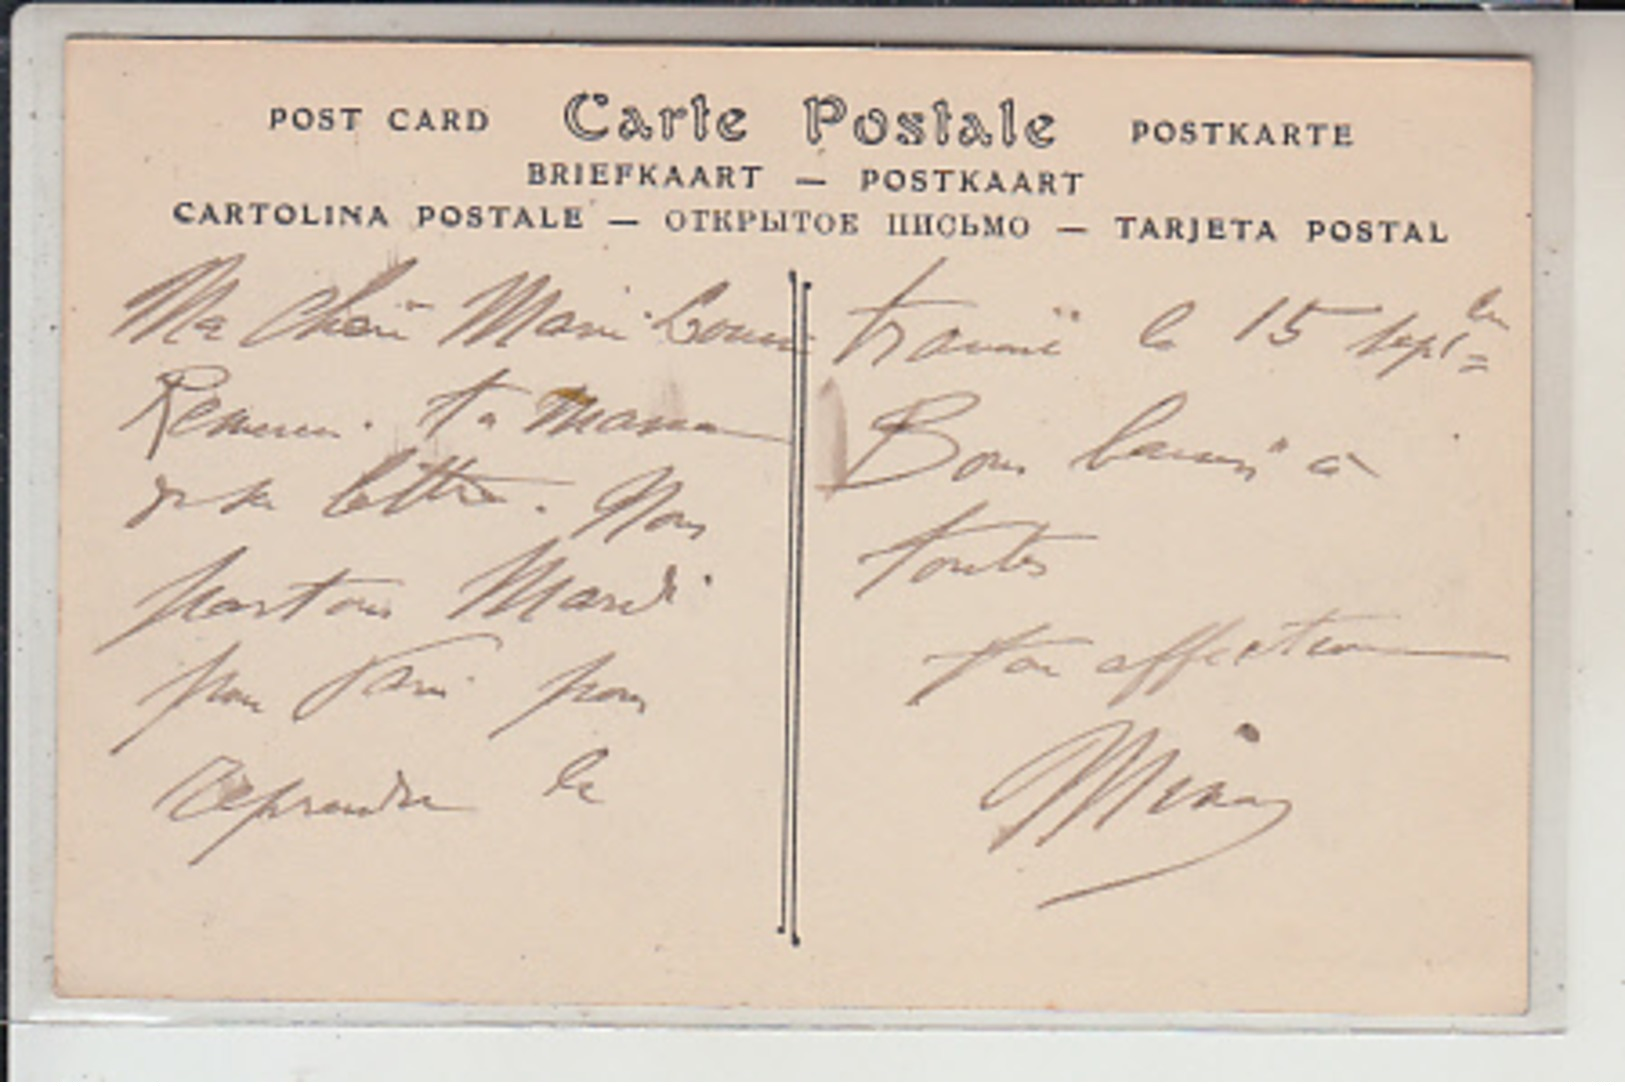 POST CARD Carte Postale POSTKARTE
BRIEFKAART — POSTKAART
CARTOLINA POSTALE — ОТКРЫТОЕ ПИСЬМО — TARJETA POSTAL
Ma chère Marie Louise
Remercie ta maman
de sa lettre. Nous
partons Mardi
pour Paris pour
reprendre le
travail le 15 sept
Bons baisers à
toutes
ton affection